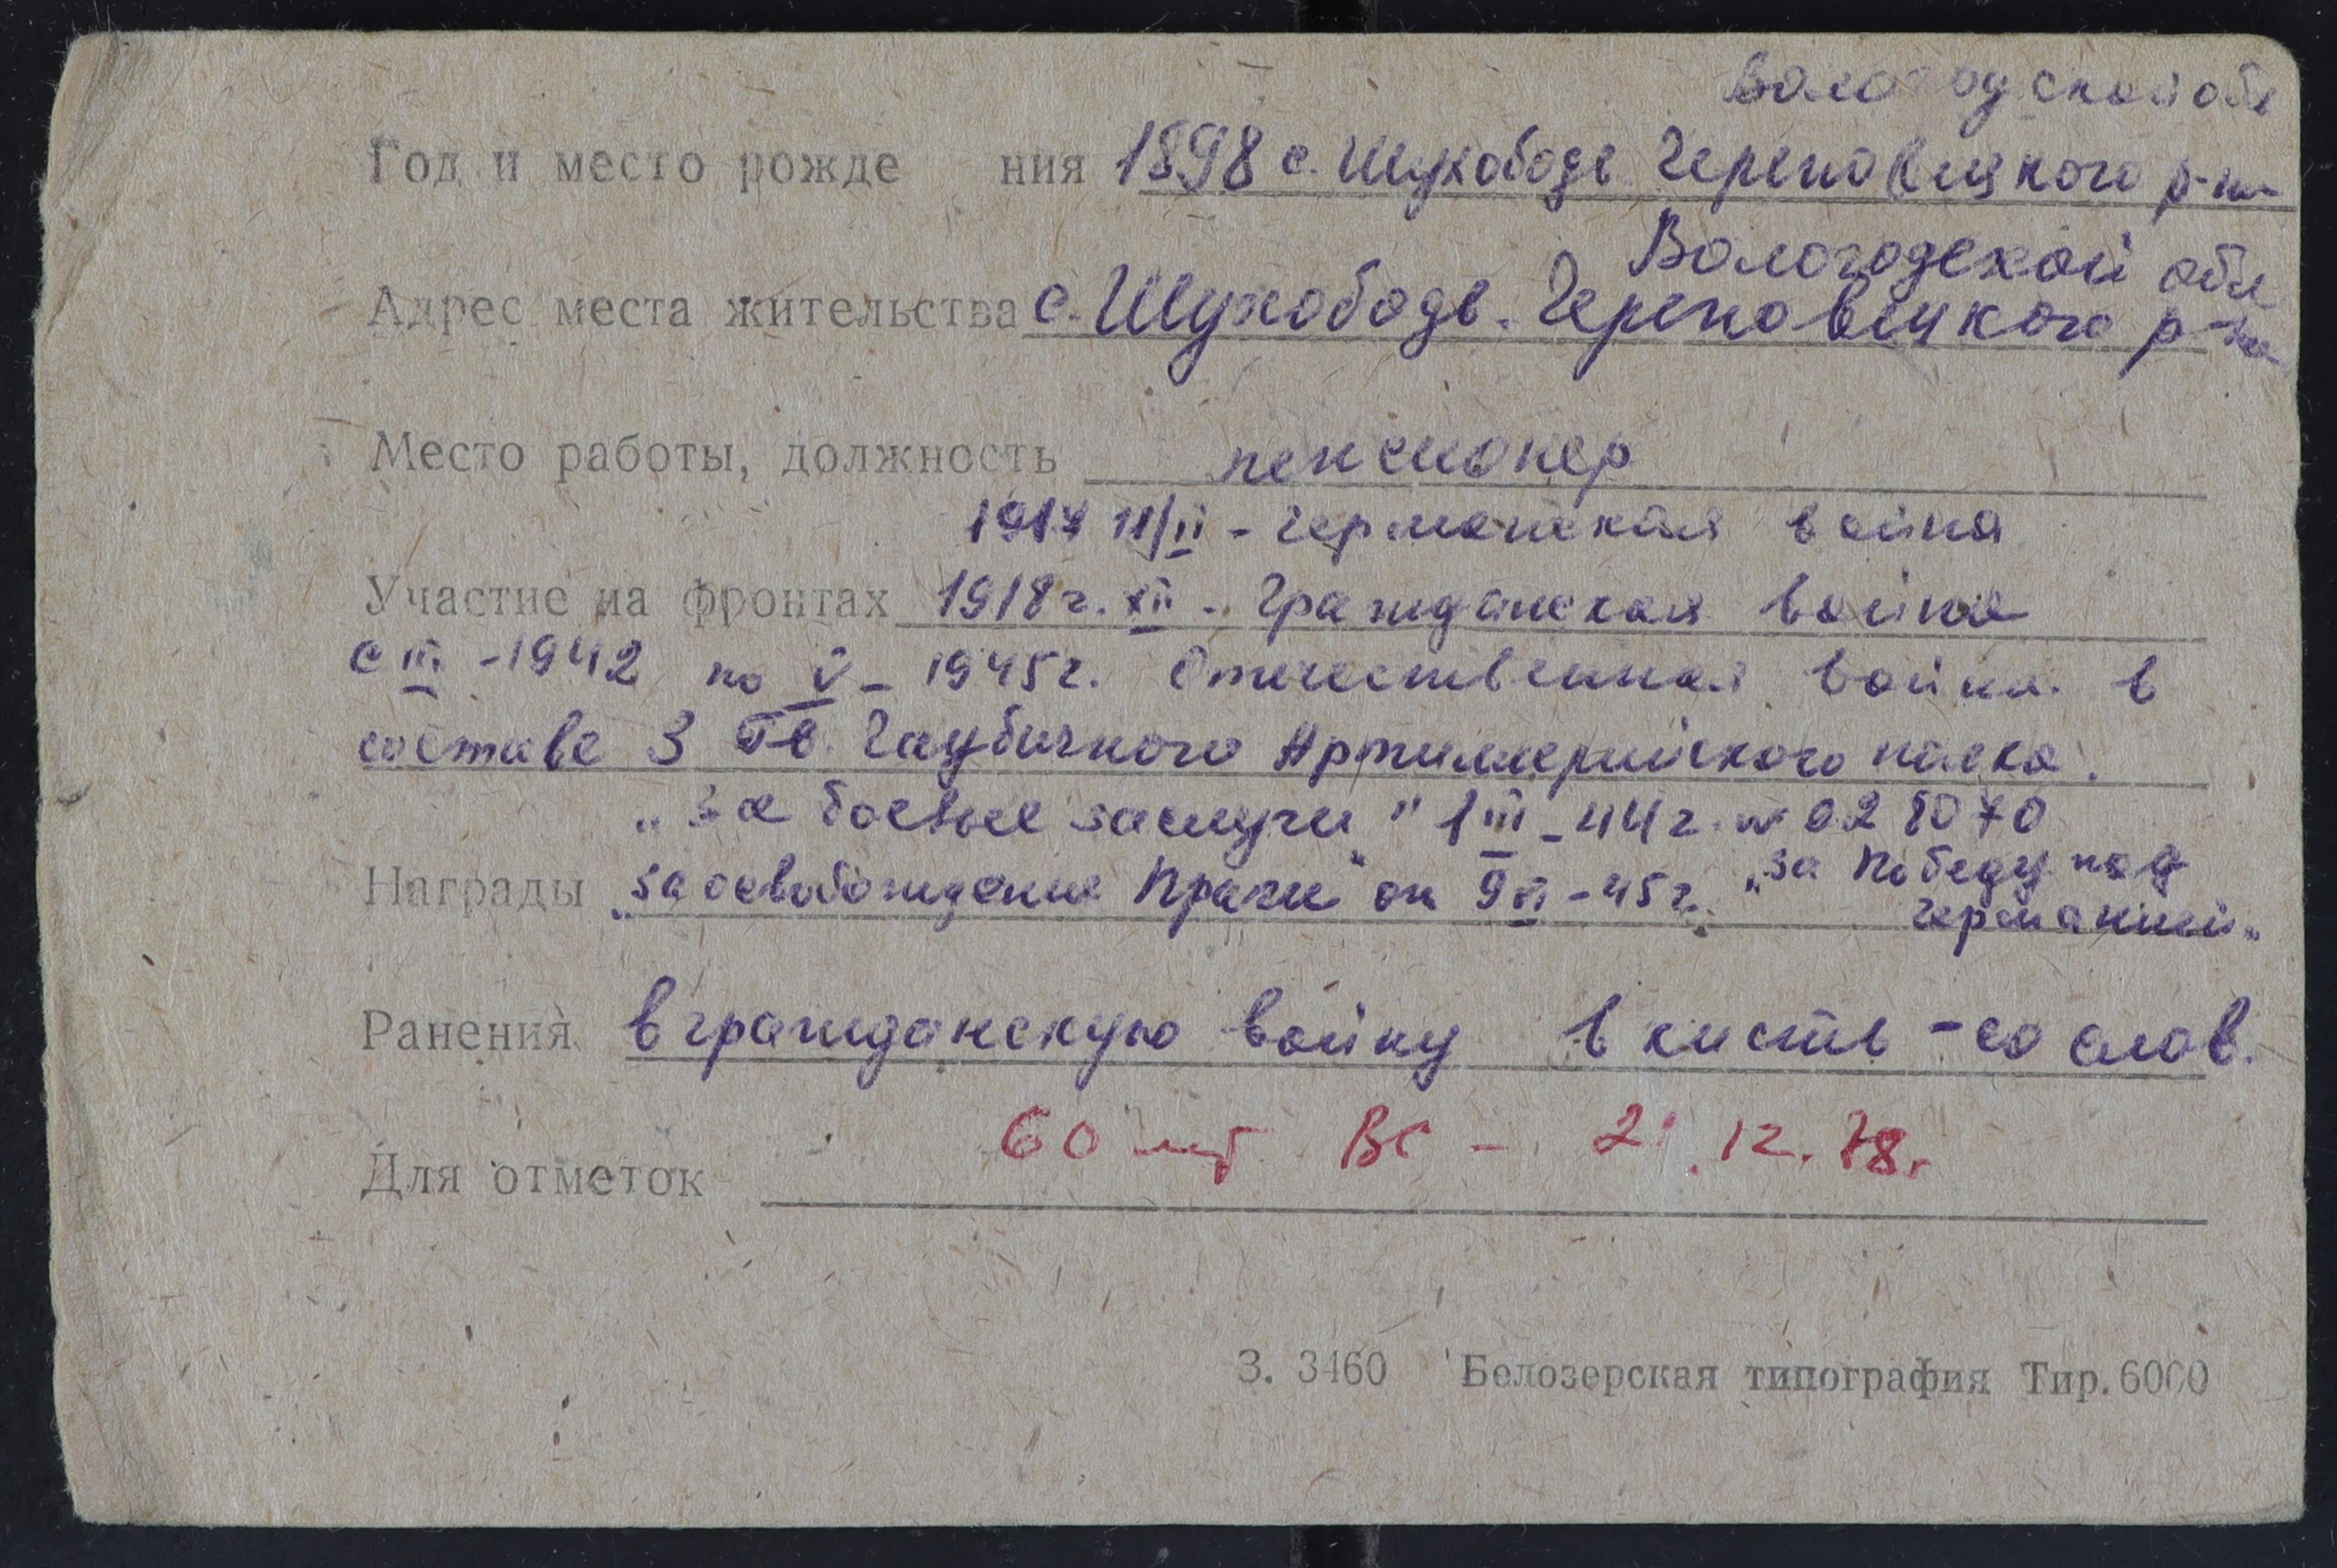 Вологодской обл
Год и место рожде ния 1898 с. Шухободь Череповецкого р-на
Вологодской обл
Адрес места жительства с. Шухободь. Череповецкого р-на
Место работы, должность пенсионер
1917 11/II - Германская война
Участие на фронтах 1918 г. XII - Гражданская война
с III - 1942 по V - 1945 г. Отечественная война. в
составе 3 Гв. Гаубичного Артиллерийского полка.
"За боевые заслуги" 1 III - 44 г. №
Награды "За освобождение Праги" от 9 VI - 45 г. "За Победу над
Германией"
Ранения в гражданскую войну в кисть - со слов.
60 лет ВС - 12. 78.
Для отметок
З. 3460 Белозерская типография Тир. 6000